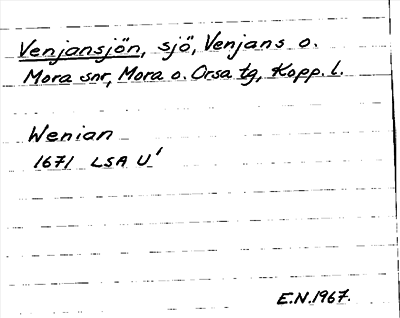 Venjansjön, sjö, Venjans o.
Mora snr, Mora o. Orsa tg, Kopp. l.
Wenian
1671 LSA U'
E.N. 1967.